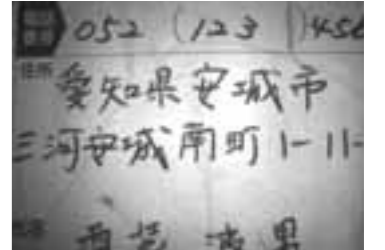 052 (123 )456
住所
愛知県安城市
三河安城南町1-11-